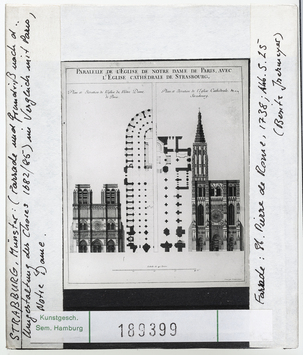 STRAßBURG, Münster. (Fassade und Grundriß nach d.
Umgestaltung des Chores 1682/85) im Vergleich mit Paris,
Notre Dame.
PARALELLE DE L'EGLISE DE NOTRE DAME DE PARIS, AVEC
L'EGLISE CATHEDRALE DE STRASBOURG.
Plan et Elevation de l'Eglise de Notre Dame
de Paris
Plan et Elevation de l'Eglise Cathedrale de
Strasbourg
Fassade: St. Pierre de Rome, 1738, Abb. S. 25
Kunstgesch.
Sem. Hamburg
189399